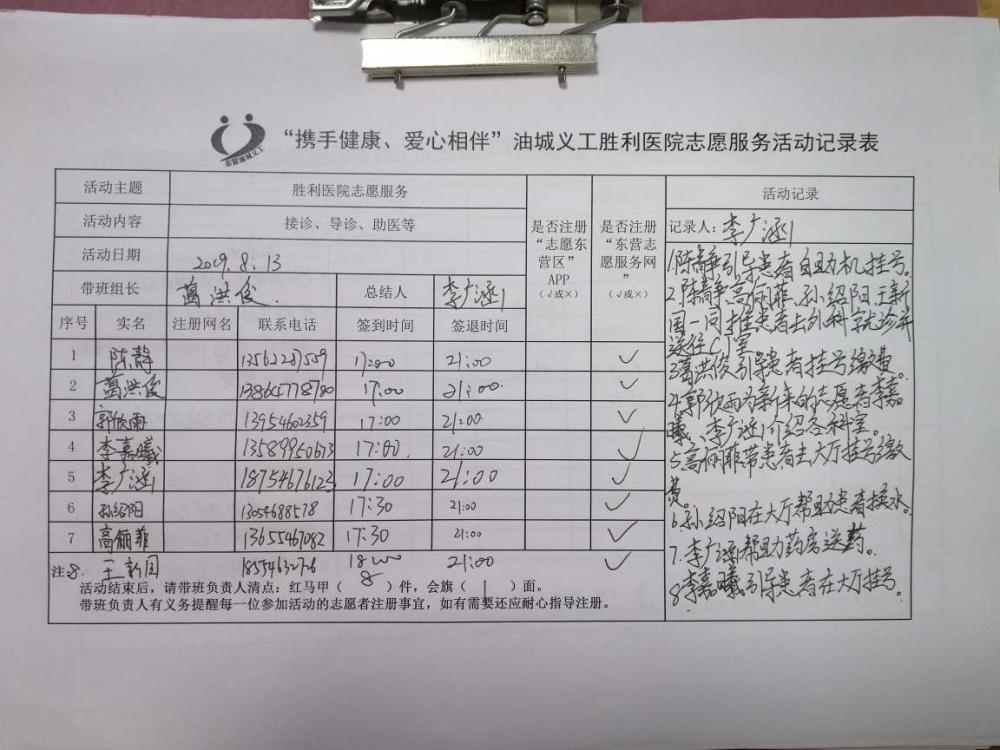 东营油城义工
“携手健康、爱心相伴”油城义工胜利医院志愿服务活动记录表
活动主题 胜利医院志愿服务
活动内容 接诊、导诊、助医等
活动日期 2019.8.13
带班组长 葛洪俊. 总结人 李广涵
是否注册“志愿东营区”APP（√或×）
是否注册“东营志愿服务网”（√或×）
序号 实名 注册网名 联系电话 签到时间 签退时间
1 陈静 13562287559 17:00 21:00 ✓
2 葛洪俊 13864778780 17:00 21:00. ✓
3 郭欣雨 13954602359 17:00 21:00 ✓
4 李嘉曦 13589950613 17:00. 21:00 ✓
5 李广涵 18754676123 17:00 21:00 ✓
6 孙绍阳 13054688578 17:30 21:00 ✓
7 高俪菲 13655467082 17:30 21:00 ✓
注: 8. 王新国 21:00 ✓
活动结束后，请带班负责人清点：红马甲（ 8 ）件，会旗（ 1 ）面。
带班负责人有义务提醒每一位参加活动的志愿者注册事宜，如有需要还应耐心指导注册。
活动记录
记录人：李广涵
1.陈静引导患者自助机挂号。
2.陈静、高俪菲、孙绍阳、王新
国一同推患者去外科就诊并
送往CT室
3.葛洪俊引导患者挂号缴费。
4.郭欣雨为新来的志愿者李嘉
曦、李广涵介绍各科室。
5.高俪菲带患者去大厅挂号缴
费。
6.孙绍阳在大厅帮助患者接水。
7.李广涵帮助药房送药。
8.李嘉曦引导患者在大厅挂号。